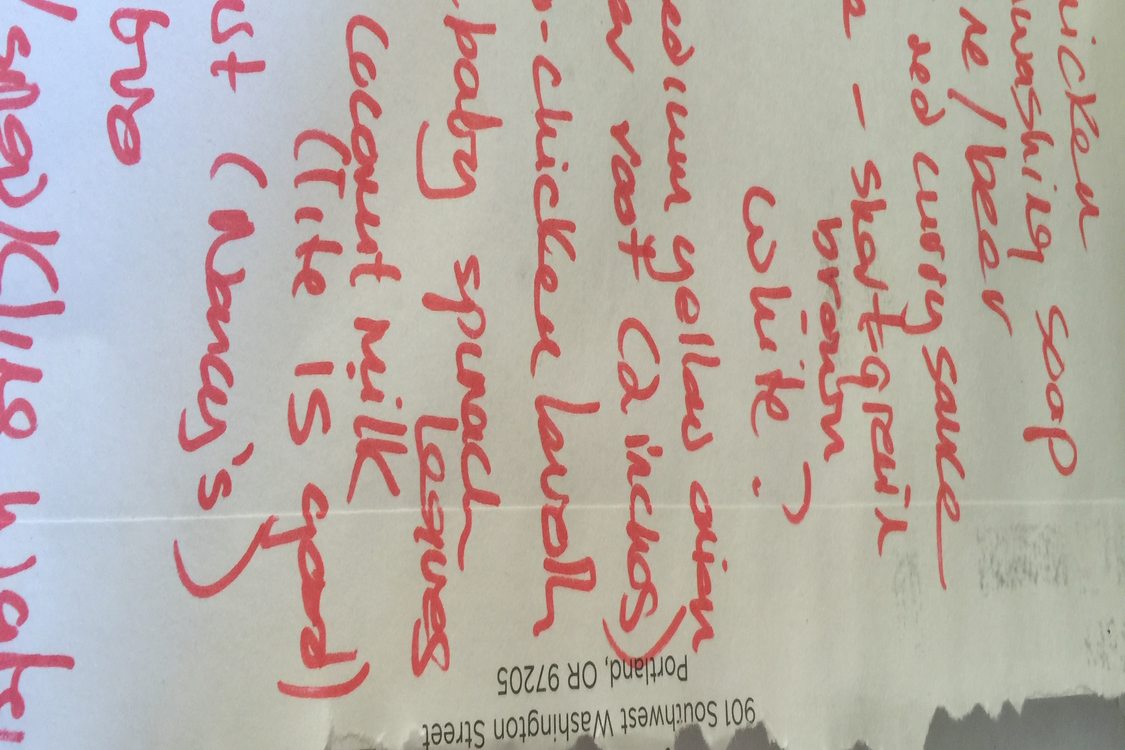 icken
washing soap
ne/beer
red curry sauce
- short grain
brown
white?
edium yellow onion
root (2 inches)
-chicken broth
baby spinach
leaves
coconut milk
(Lite is good)
(Nancy's)
901 Southwest Washington Street
Portland, OR 97205